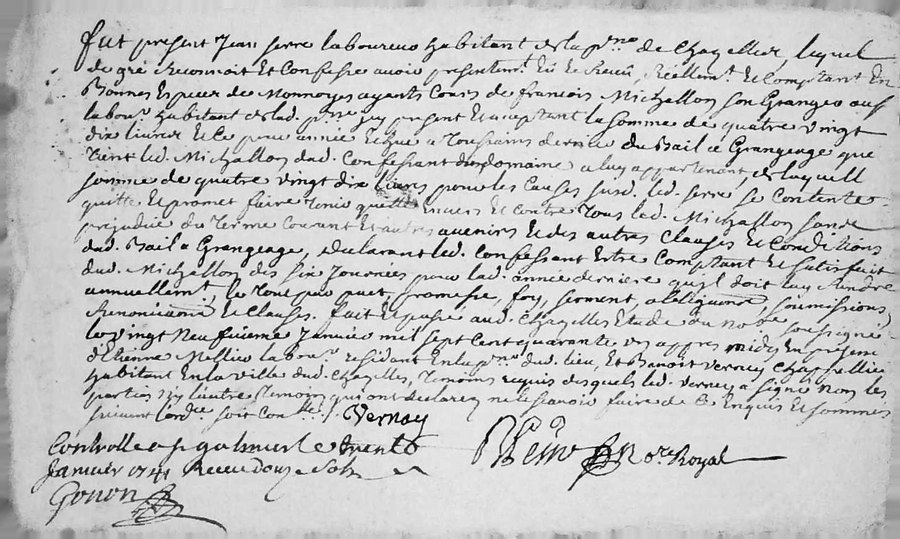 fut présent Jean serre laboureur habitant de la p.sse de Chazelles, lequel
de gré Reconnoit Et Confesse avoir présentem.t Eû Et Receû, Réellem.t Et Comptant En
Bonnes Especes de Monnoyes ayants Cours de françois Michallon son Granger aussy
labou.r habitant de lad. p.sse Icy présent Et acceptant la somme de quatre vingt
dix livres Et Ce pour année Echue a Toussaints dernier du Bail a Grangeage que
Tient led. Michallon dud. Confessant du domaine a luy appartenant de laquell
somme de quatre vingt dix livres pour les Causes susd. led. serre se Contente
quitte Et promet faire Tenir quitte Envers Et Contre Tous led. Michallon sans
préjudice du Terme Courant Et autres avenirs Et des autres Clauses Et Conditions
dud. Bail a Grangeage, declarant led. Confessant Estre Comptant Et satisfait
dud. Michallon des six Journées pour lad. année derniere qu'il doit luy Rendre
annuellem.t, le Tout par pact, promesse, foy, serment, obligations, soumissions,
Renonciations Et Clauses. fait Et passé aud. Chazelles Etude du No.re soussigné
le vingt Neufvieme Janvier mil sept Cent quarante un appres midy En présence
d'Etienne Mellier labou.r residant En la p.sse dud. lieu, Et Benoit Vernay Chappellier
habitant En la Ville dud. Chazelles, Temoins requis desquels led. Vernay a signé Non les
parties Ny l'autre Temoin qui ont declaré ne sçavoir faire de Ce Enquis Et sommés
suivant l'ord.ce soit Con.llé
Vernay
Controllé a s.t galmier le trente
Janvier 1741 Receu douze sols
No.re Royal
Gonon